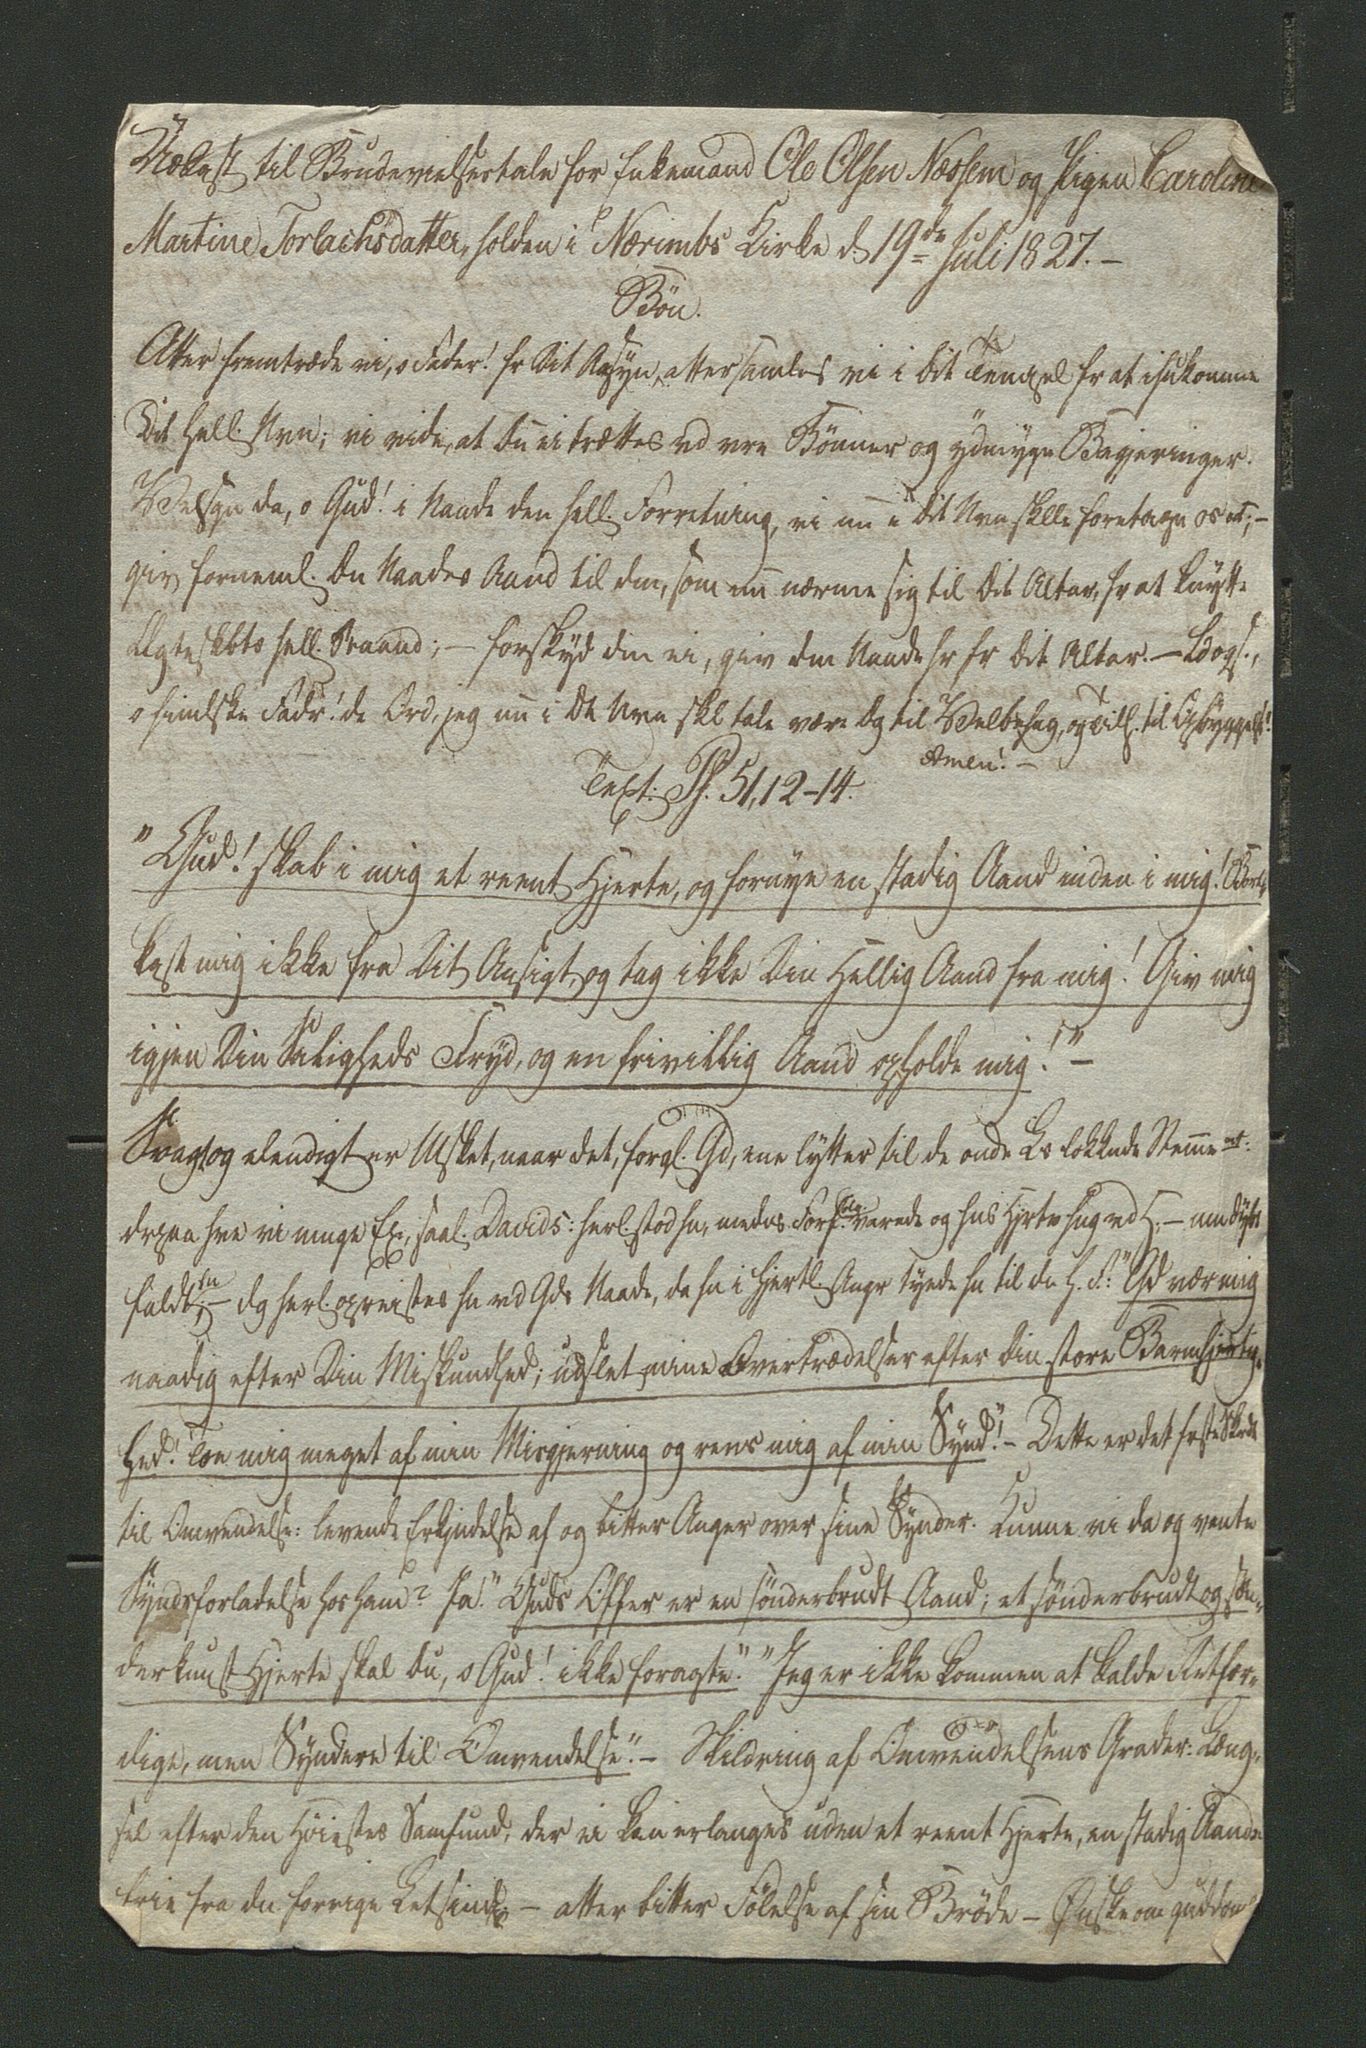 Udkast til Brudevielsestale for Enkemand Ole Olsen Næssem og Pigen Caroline
Martine Torlachsdatter, holden i Nærimbs Kirke d. 19de Juli 1827. –
Bön.
Atter fremtræde vi, o Fader! for Dit Aasyn, atter samles vi i Dit Tempel for at ihukomme
Dit hell. Nvn; vi vide, at Du ei trættes ved vre Bönner og ydmyge Begjeringer.
Velsign da, o Gud! i Naade den hell. Forretning, vi nu i Dit Nvn skulle foretage os;–
giv forneml. Din Naades Aand til dem, som nu nærme sig til Dit Altar, for at knytte
Ægteskbts hell. Baand; – forskyd dem ei, giv dem Naade hr fr Dit Altar. – Lad ogs.,
o himlske Fadr! de Ord, jeg nu i Dt Nvn skl tale være Dg til Velbehag, og Till. til Opbyggelse!
Amen! –
Text: Ps. 51, 12–14.
"Gud! skab i mig et reent Hjerte, og fornye en stadig Aand inden i mig! Bort-
kast mig ikke fra Dit Ansigt, og tag ikke Din Hellig Aand fra mig! Giv mig
igjen Din Saligheds Fryd, og en frivillig Aand opholde mig!" –
Svagt og elendigt er Msket, naar det, forgl. Gd, ene lytter til de onde Ls lokknde Stemme
drpaa hve vi mnge Ex., saal. Davids: herl. stod hn, medns Forfn varede og hns Hjrte hng vd H. – mn dybt
faldt hn; – dg herl. opreistes hn vd Gds Naade, da hn i hjertl. Angr tyede hn til dn H. F: "Gd vær mig
naadig efter Din Miskundhed; udslet mine Overtrædelser efter Din store Barmhjertig-
hed! Toe mig meget af min Misgjerning og rens mig af min Synd"! – Dette er det frste Skrdt
til Omvendelse: levende Erkjendelse af og bitter Anger over sine Synder. Kunne vi da og vente
Syndsforladelse hos ham? Ja. "Guds Offer er en sönderbrudt Aand; et sönderbrudt og sön-
derknust Hjerte skal Du, o Gud! ikke foragte". "Jeg er ikke kommen at kalde Retfær-
dige, men Syndere til Omvendelse". – Skildring af Omvendelsens Grader: Læng-
sel efter den Höiestes Samfund, der ei kan erlanges uden et reent Hjerte, en stadig Aand
frie fra dn forrige Letsind – atter bitter Fölelse af sin Bröde – Önske om guddom